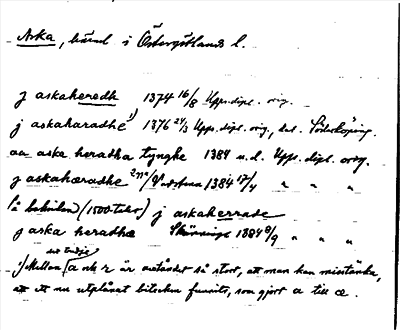 Aska, härad i Östergötlands l.
j askaheredh 1374 16/8 Upps. dipl. orig.
j askaharadhe 1) 1376 24/3 Upps. dipl. orig., dat. Söderköping.
aa aska heradha tynghe 1384 u.d. Upps. dipl. orig.
j askahæradhe Vadstena 1384 17/4 " " "
På baksidan (1500-talet) j askaherrade
j aska heradhæ Skänninge 1384 8/9 " " "
1) Mellan det tredje a och r är avståndet så stort, att man kan misstänka,
att ett nu utplånat bitecken funnits, som gjort a till æ.